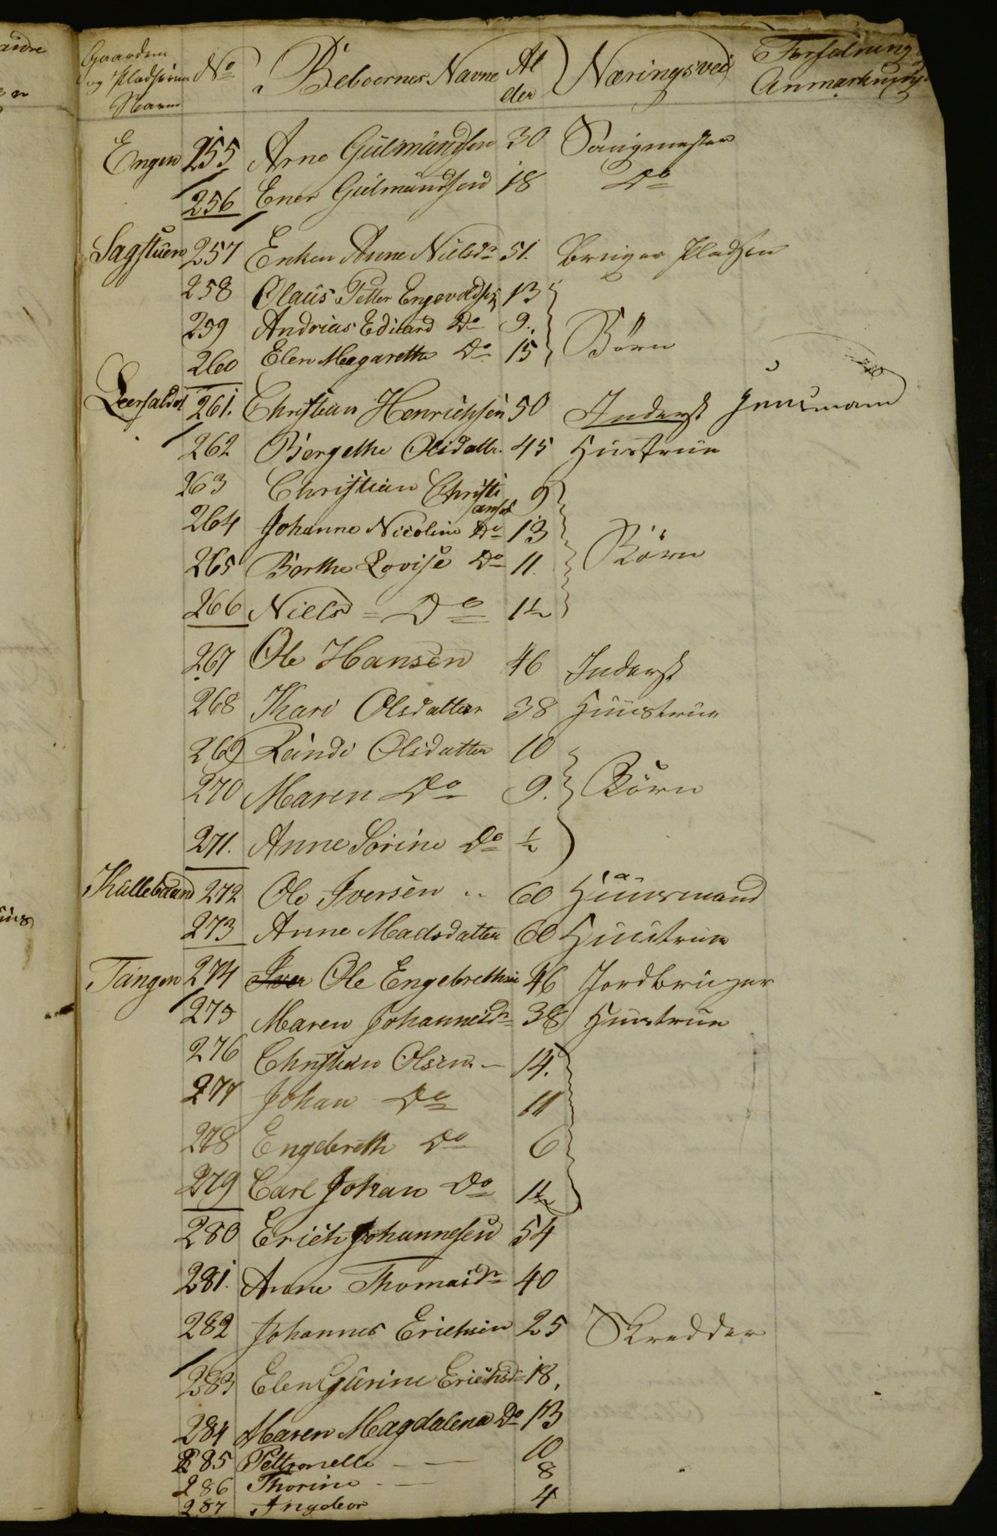 Gaardens og Pladsenes Navne No Beboernes Navne Alder Næringsvei Forfatning Anmærkning
Engen 255 Arne Gulmundsen 30 Saugmester
256 Ener Gulmundsen 18 Do
Sagstuen 257 Enken Anne Nielsdr 51. Bruger Pladsen
258 Olaus Petter Engevoldsen 13
259 Andreas Eduard Do 9. Børn
260 Elen Margarethe Do 15
Leerfaldet 261. Christian Henrichsen 50 Inderst Huusmand
262 Børgethe Olsdatter 45 Hustrue
263 Christian Christiansen 9
264 Johanne Nicoline Do 13 Børn
265 Berthe Lovise Do 11.
266 Niels Do 1½
267 Ole Hansen 46 Inderst
268 Kari Olsdatter 38 Huustrue
269 Randi Olsdatter 10
270 Maren Do 9. Børn
271. Anne Sorine Do ½
Kullebund 272 Ole Iversen 60 Huusmand
273 Anne Madsdatter 60 Huustrue
Tangen 274 Iver Ole Engebrethsen 46 Jordbruger
275 Maren Johannesdr 38 Hustrue
276 Christian Olsen 14.
277 Johan Do 11
278 Engebreth Do 6
279 Carl Johan Do 1½
280 Erich Johannesen 54
281. Anne Thomasdr 40
282 Johannes Erichsen 25 Skredder
283 Elen Gurine Erichsdr 18,
284 Maren Magdalena Do 13
285 Pettronelle — — 10
286 Thorine — — 8
287 Angebor 4